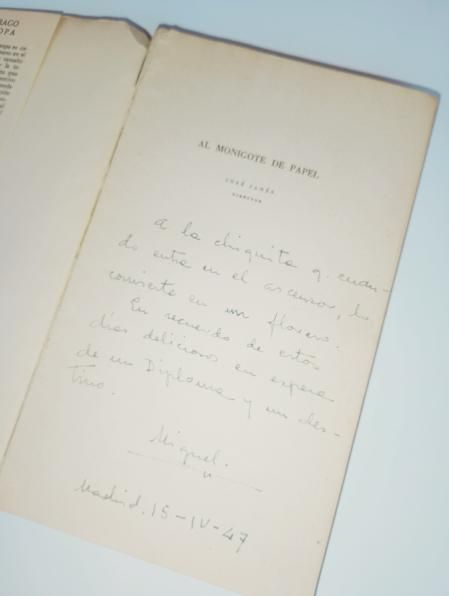 IAGO
OPA
AL MONIGOTE DE PAPEL
JOSÉ JANÉS
a la chiquita q. cuan-
do entra en el ascensor, lo
convierte en un florero.
En recuerdo de estos
días deliciosos en espera
de un Diploma y un des-
tino.
Miguel.
Madrid. 15-IV-47